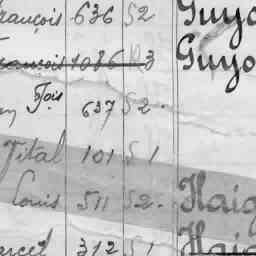 François 636 S2 Guyo
François 1086 R3 Guyo
Fois 637 S2.
Vital 101 S1
Louis 511 S2. Haig
Marcel 312 S1 Haig